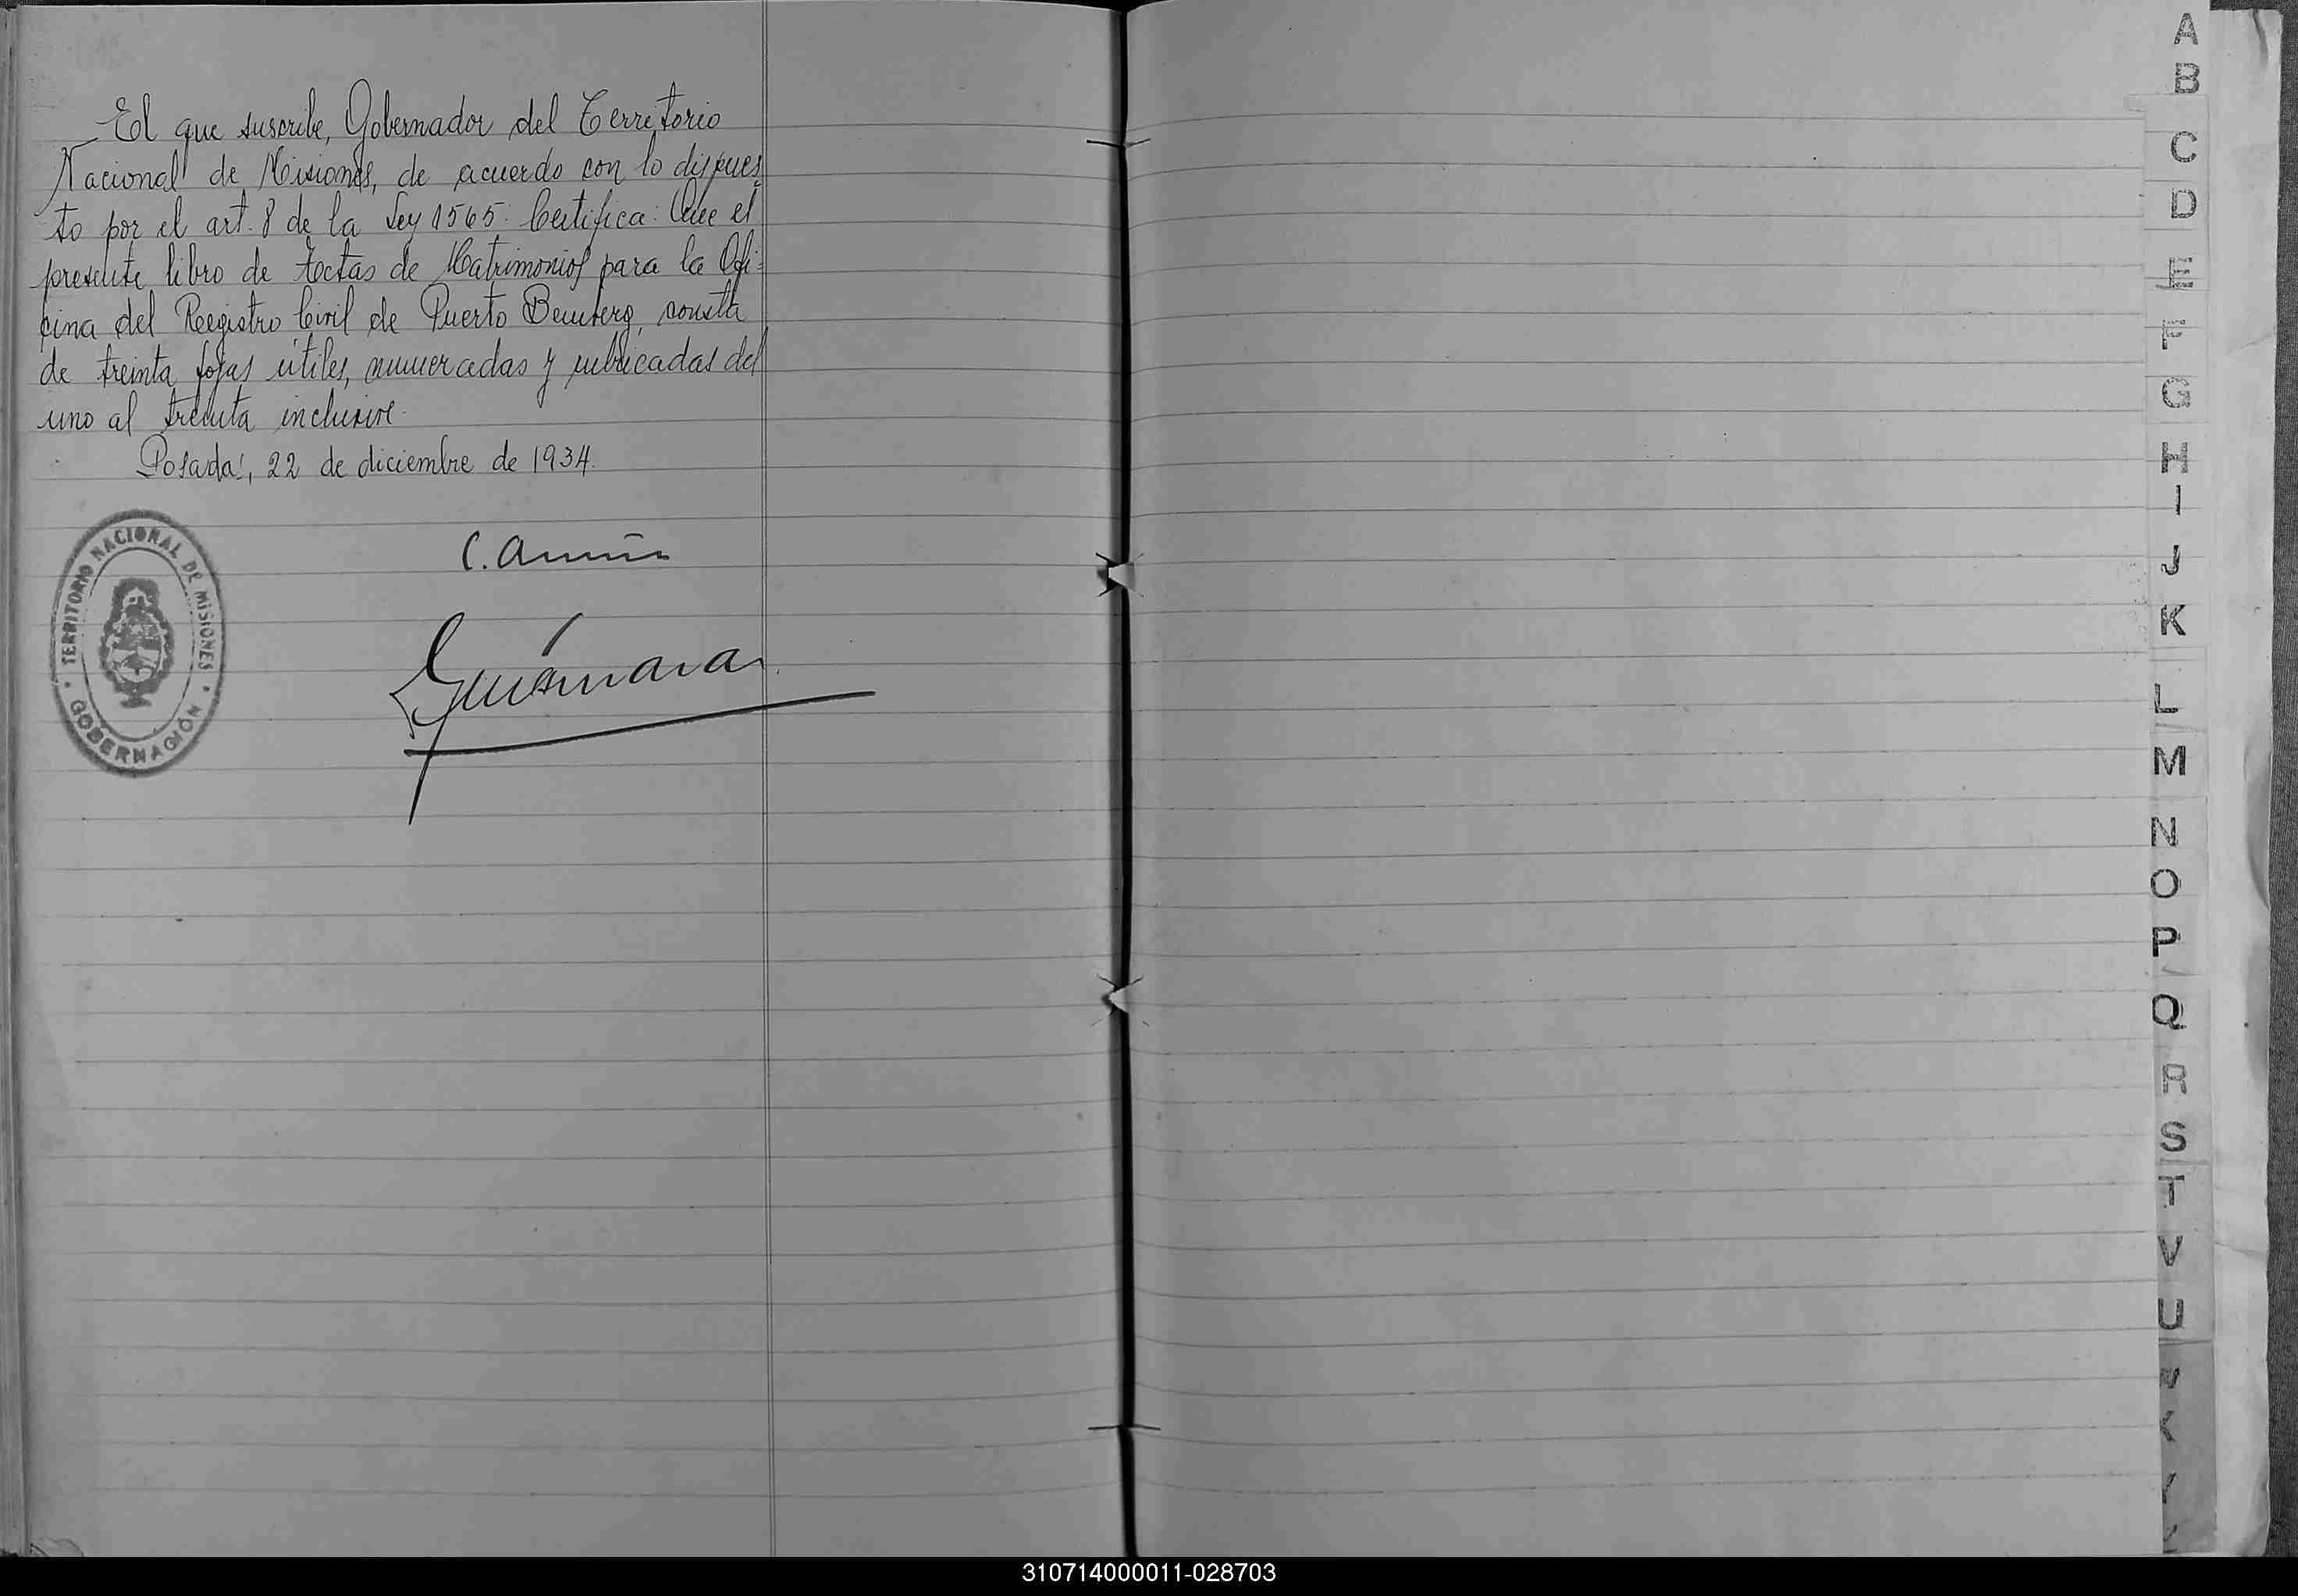 El que suscribe, Gobernador del Territorio
Nacional de Misiones, de acuerdo con lo dispues
to por el art. 8 de la Ley 1565: Certifica: Que el
presente libro de Actas de Matrimonios para la Ofi-
cina del Registro Civil de Puerto Bemberg, consta
de treinta fojas útiles, numeradas y rubricadas del
uno al treinta inclusive.
Posadas, 22 de diciembre de 1934.
TERRITORIO NACIONAL DE MISIONES
GOBERNACIÓN
A
B
C
D
E
F
G
H
I
J
K
L
M
N
O
P
Q
R
S
T
V
U
310714000011-028703